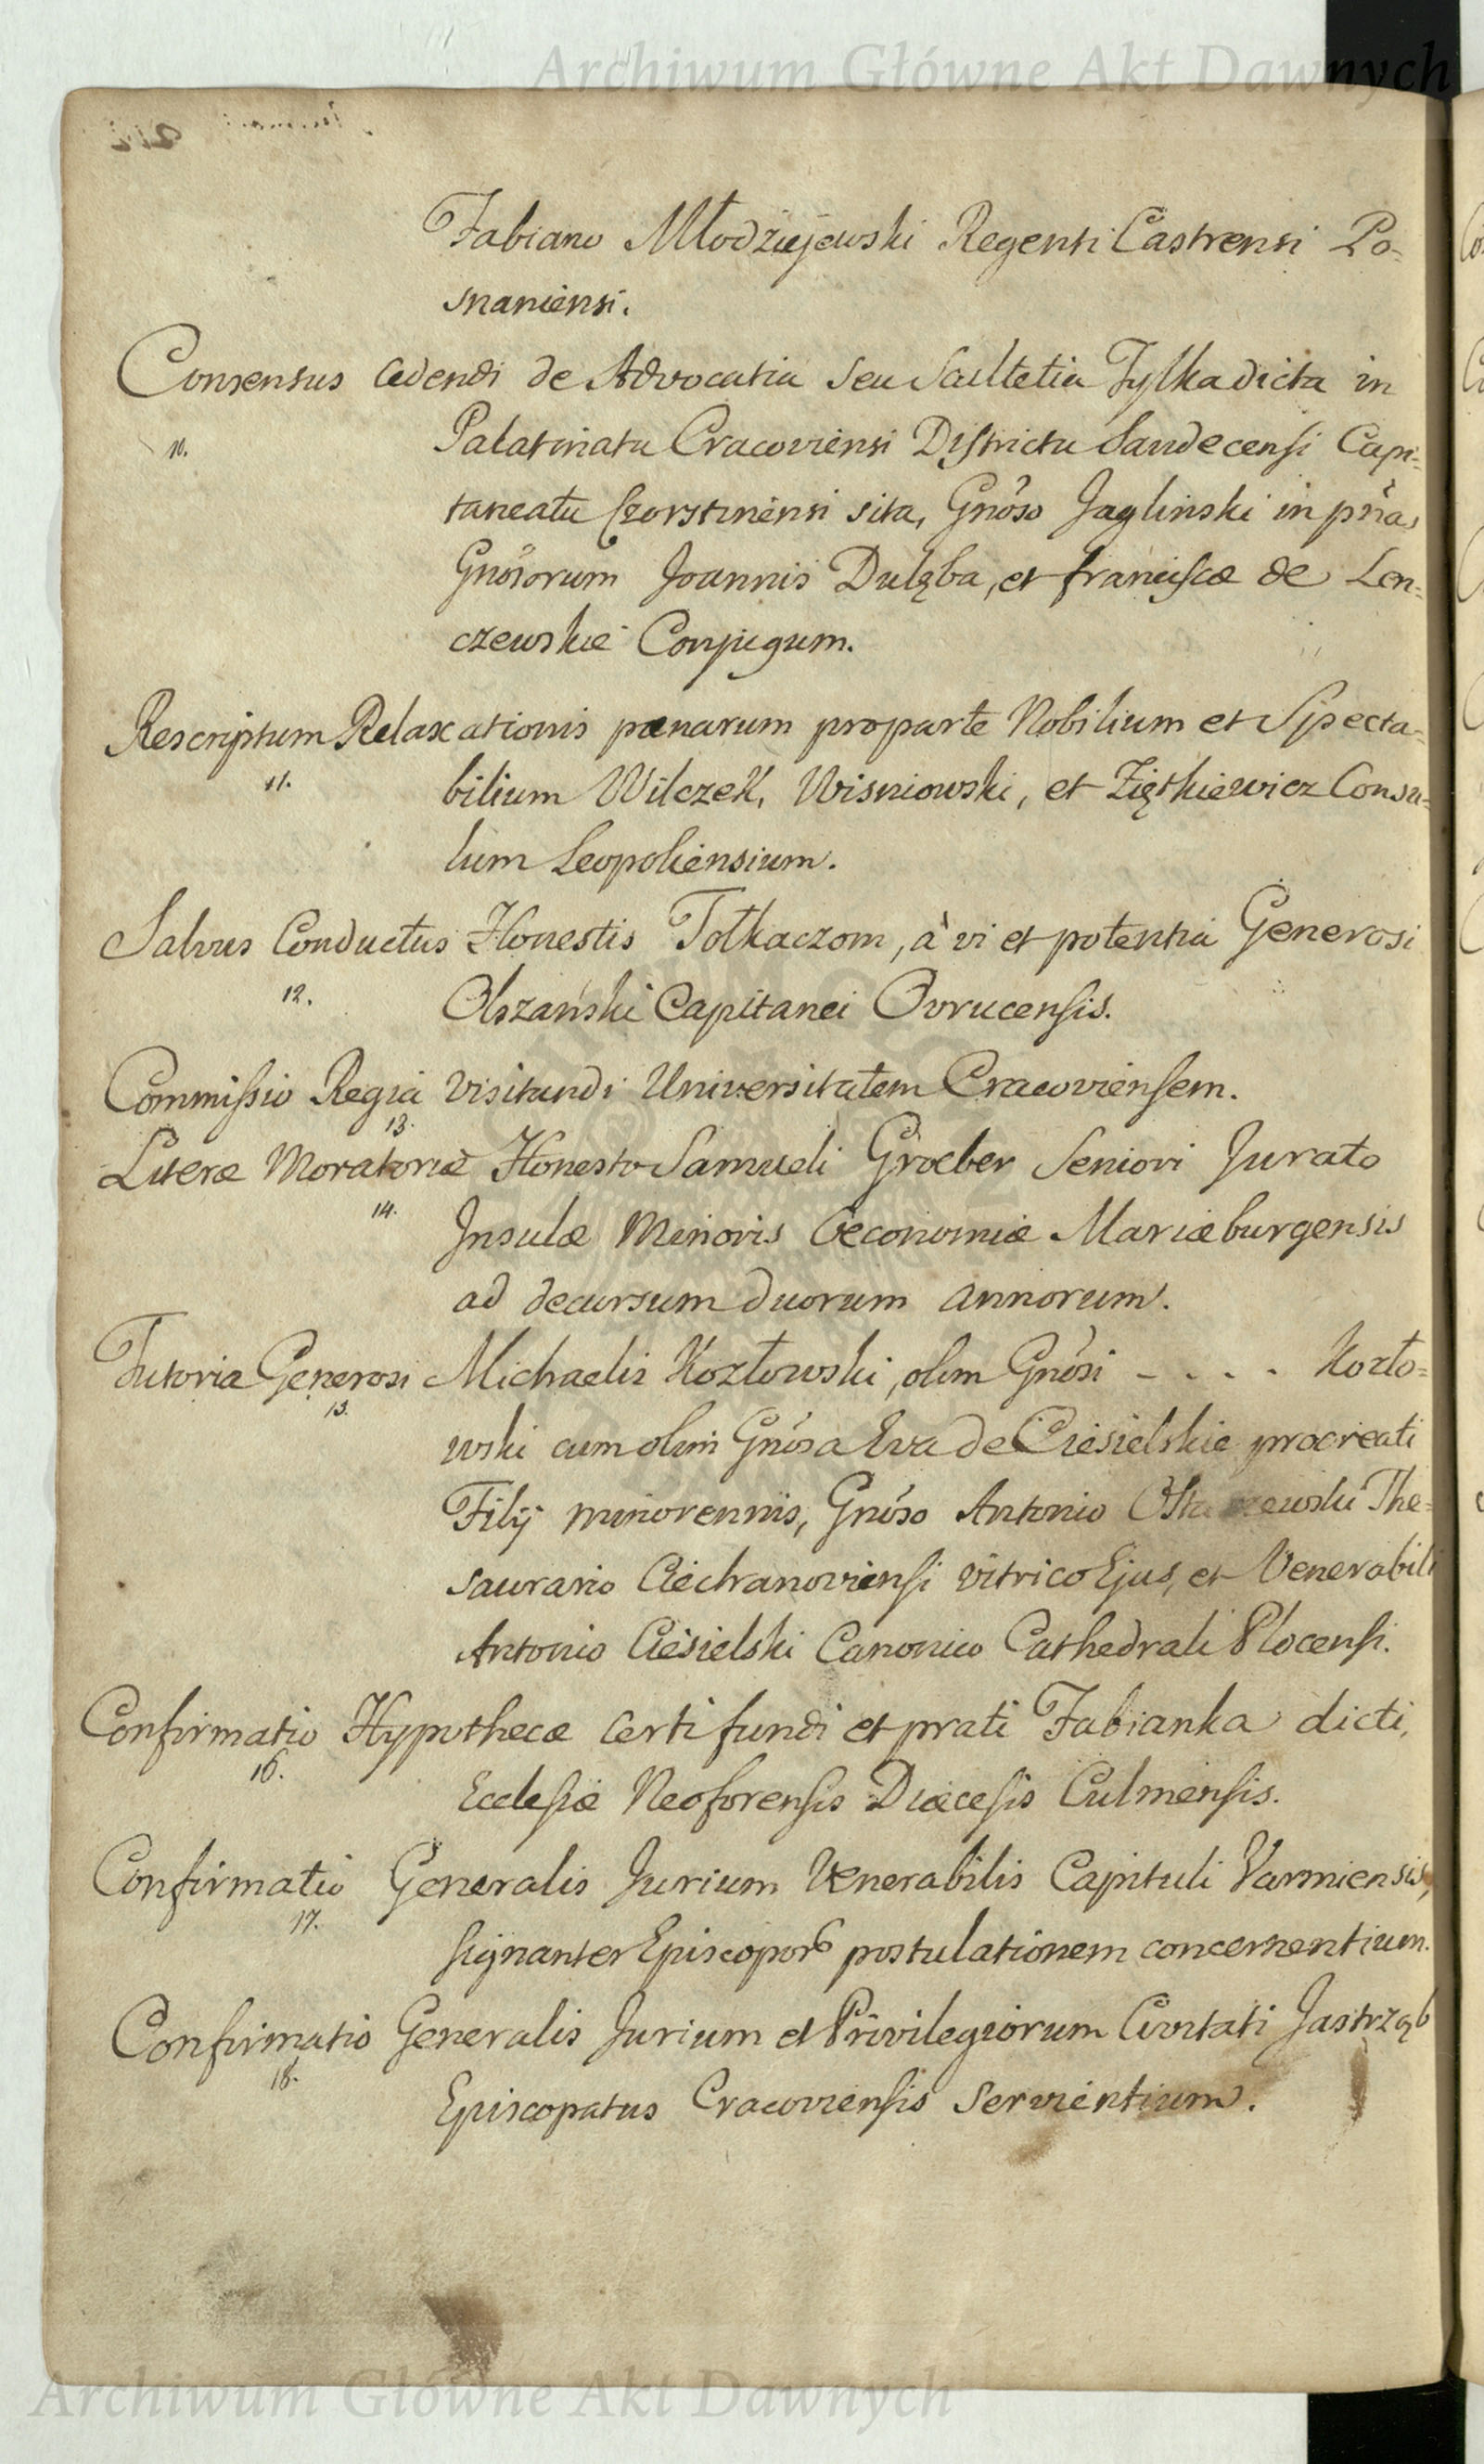 Archiwum Główne Akt Dawnych
Fabiano Młodziejewski Regenti Castrensi Po-
snaniensi.
Consensus cedendi de Advocatia seu Scultetia Tylka dicta in
10. Palatinatu Cracoviensi Districtu Sandecensi Capi-
taneatu Czorstinensi sita, Gnõso Jaglinski in pñas
Gnõsorum Joannis Dulęba, et Franciscæ de Len-
czewskie Conjugum.
Rescriptum Relaxationis pœnarum pro parte Nobilium et Specta-
11. bilium Wilczek, Wisniowski, et Ziętkiewicz Consu-
lum Leopoliensium.
Salvus Conductus Honestis Tołkaczom, à vi et potentia Generosi
12. Olszański Capitanei Ovrucensis.
Commissio Regia visitandi Universitatem Cracoviensem.
13.
Literæ Moratoriæ Honesto Samueli Groeber Seniori Jurato
14. Insulæ Minoris Oeconomiæ Mariæburgensis
ad decursum duorum annorum.
Tutoria Generosi Michaelis Kozłowski, olim Gnõsi - . . . Kozło-
15. wski cum olim Gnõsa Eva de Ciesielskie procreati
Filij minorennis, Gnõso Antonio The-
saurario Ciechanoviensi vitrico Ejus, et Venerabili
Antonio Ciesielski Canonico Cathedrali Plocensi.
Confirmatio Hypothecæ certi fundi et prati Fabianka dicti,
16. Ecclesiæ Neoforensis Diæcesis Culmensis.
Confirmatio Generalis Jurium Venerabilis Capituli Varmiensis,
17. signanter Episcopor̃ postulationem concernentium.
Confirmatio Generalis Jurium et Privilegiorum Civitati Jastrząb
18. Episcopatus Cracoviensis servientium.
Archiwum Główne Akt Dawnych